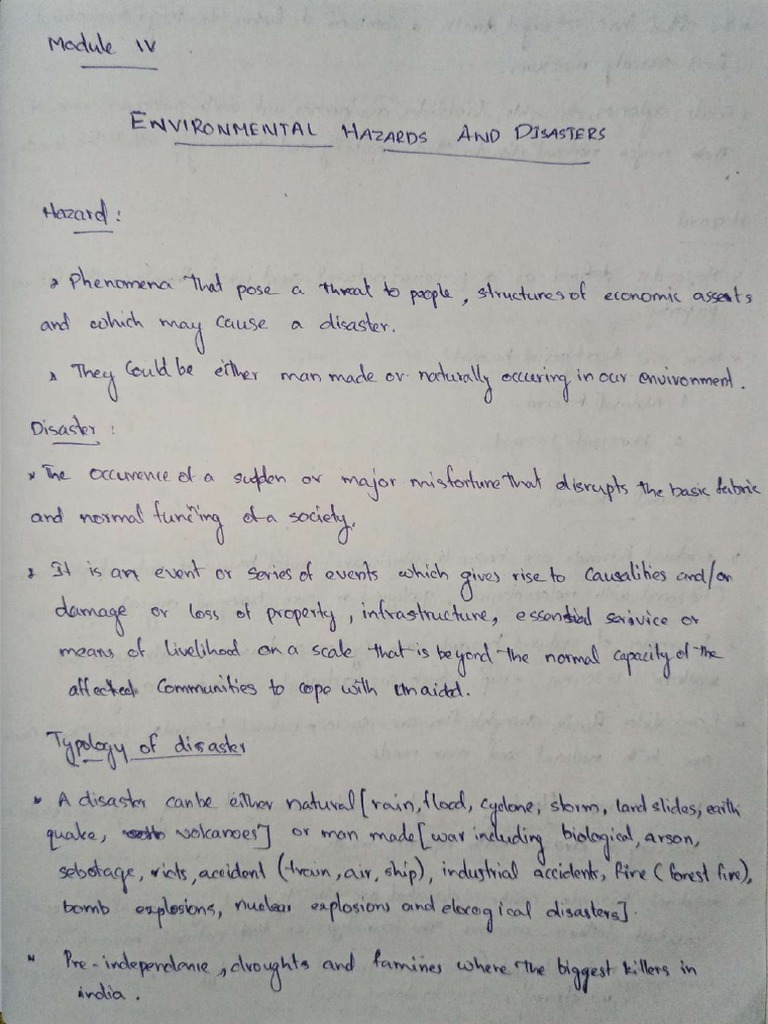 Module IV
ENVIRONMENTAL HAZARDS AND DISASTERS
Hazard :
* Phenomena that pose a threat to people, structures of economic assests
and which may cause a disaster.
* They could be either man made or naturally occuring in our environment.
Disaster :
* The occurrence of a sudden or major misfortune that disrupts the basic fabric
and normal functing of a society.
* It is an event or series of events which gives rise to causalities and/or
damage or loss of property, infrastructure, essential serivice or
means of livelihood on a scale that is beyond the normal capacity of the
affected communities to cope with unaidd.
Typology of disaster
* A disaster can be either natural [rain, flood, cyclone, storm, land slides, earth
quake, volcanoes] or man made [war including biological, arson,
sebotage, riots, accident (train, air, ship), industrial accidents, fire (forest fire),
bomb explosions, nuclear explosions and elocogical disasters].
* Pre-independenie, droughts and famines where the biggest killers in
india.